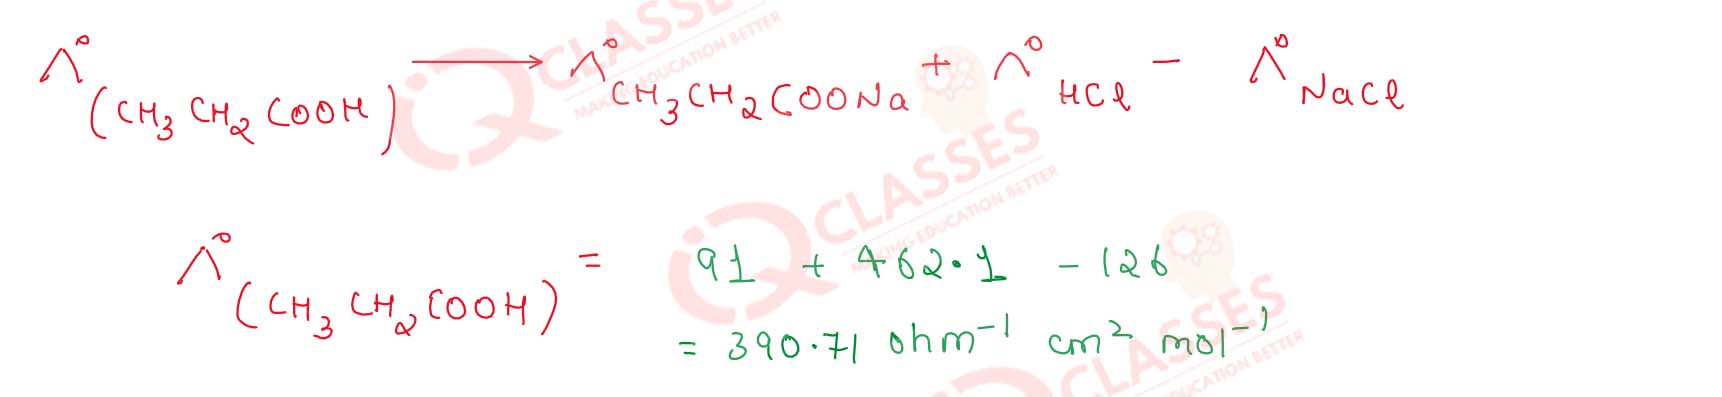 Λ° (CH₃CH₂COOH) ⟶ Λ° CH₃CH₂COONa + Λ° HCl − Λ° NaCl
Λ° (CH₃CH₂COOH) = 91 + 462.1 − 126
= 390.71 ohm⁻¹ cm² mol⁻¹
CLASSES
MAKING EDUCATION BETTER
iQ CLASSES
MAKING EDUCATION BETTER
CLASSES
EDUCATION BETTER